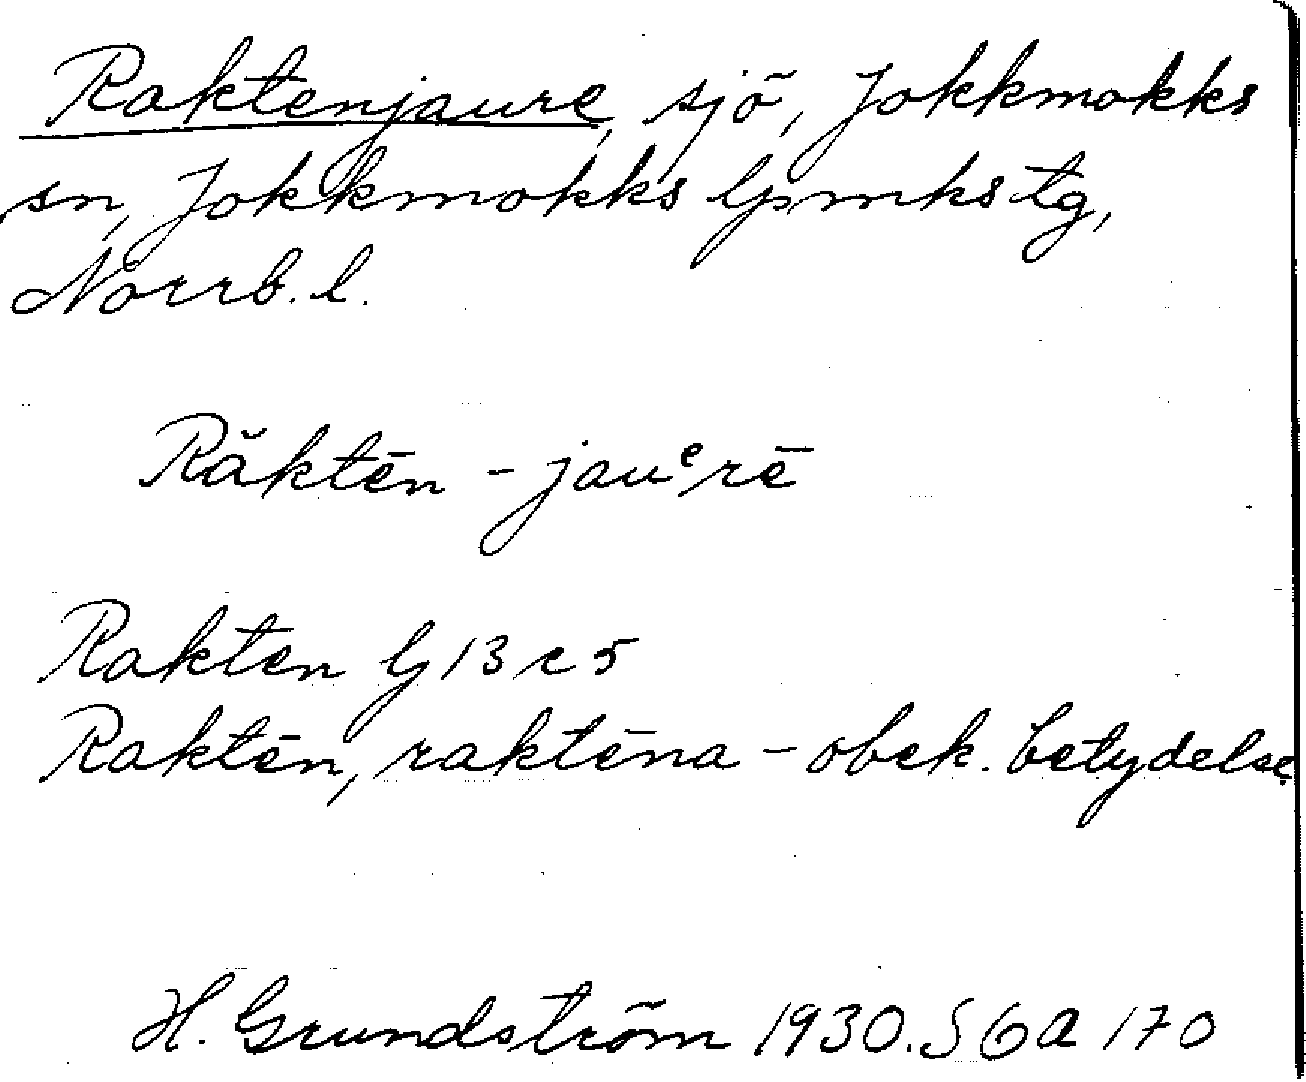 Raktenjaure, sjö, Jokkmokks
sn, Jokkmokks lpmks tg,
Norrb. l.
Răktēn - jauᵉrē
Rakten lj 13 c 5
Raktēn, raktēna - obek. betydelse
H. Grundström 1930. S 6 a 170